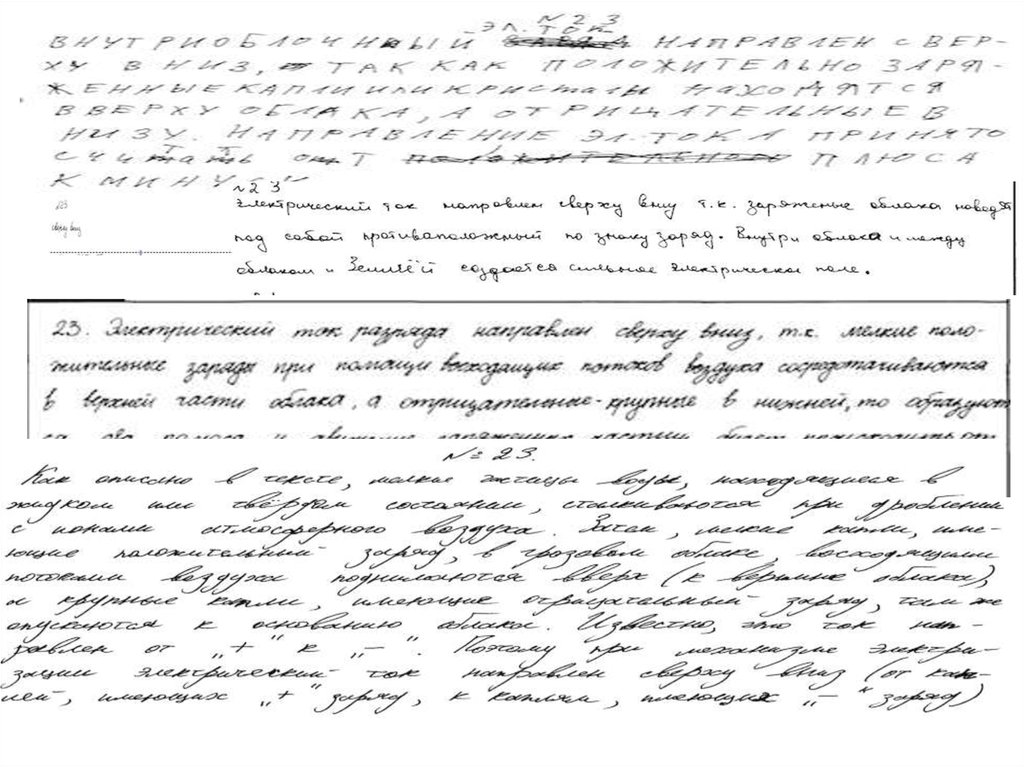 № 23
эл. ток
ВНУТРИОБЛОЧНЫЙ НАПРАВЛЕН СВЕР-
ХУ ВНИЗ, ТАК КАК ПОЛОЖИТЕЛЬНО ЗАРЯ-
ЖЕННЫЕ КАПЛИ ИЛИ КРИСТАЛЫ НАХОДЯТСЯ
ВВЕРХУ ОБЛАКА, А ОТРИЦАТЕЛЬНЫЕ В
НИЗУ. НАПРАВЛЕНИЕ ЭЛ. ТОКА ПРИНЯТО
СЧИТАТЬ ОТ ПЛЮСА
К МИНУ
№ 23
23
сверху вниз
Электрический ток направлен сверху вниз т.к. заряженые облака наводят
под собой противаположный по знаку заряд. Внутри облака и между
облаком и Землёй создается сильное электрическое поле.
23. Электрический ток разряда направлен сверху вниз, т.к. мелкие поло-
жительные заряды при помощи восходящих потоков воздуха сосредотачиваются
в верхней части облака, а отрицательные-крупные в нижней, то образуют
№ 23.
Как описано в тексте, мелкие частицы воды, находящиеся в
жидком или твёрдом состоянии, сталкиваются при дроблении
с ионами атмосферного воздуха. Затем, мелкие капли, име-
ющие положительный заряд, в грозовом облаке, восходящими
потоками воздуха поднимаются вверх (к вершине облака),
а крупные капли, имеющие отрицательный заряд, там же
опускаются к основанию облака. Известно, что ток нап-
равлен от „+" к „–". Поэтому при механизме электри-
зации электрический ток направлен сверху вниз (от кап-
лей, имеющих „+" заряд, к каплям, имеющих „–" заряд)